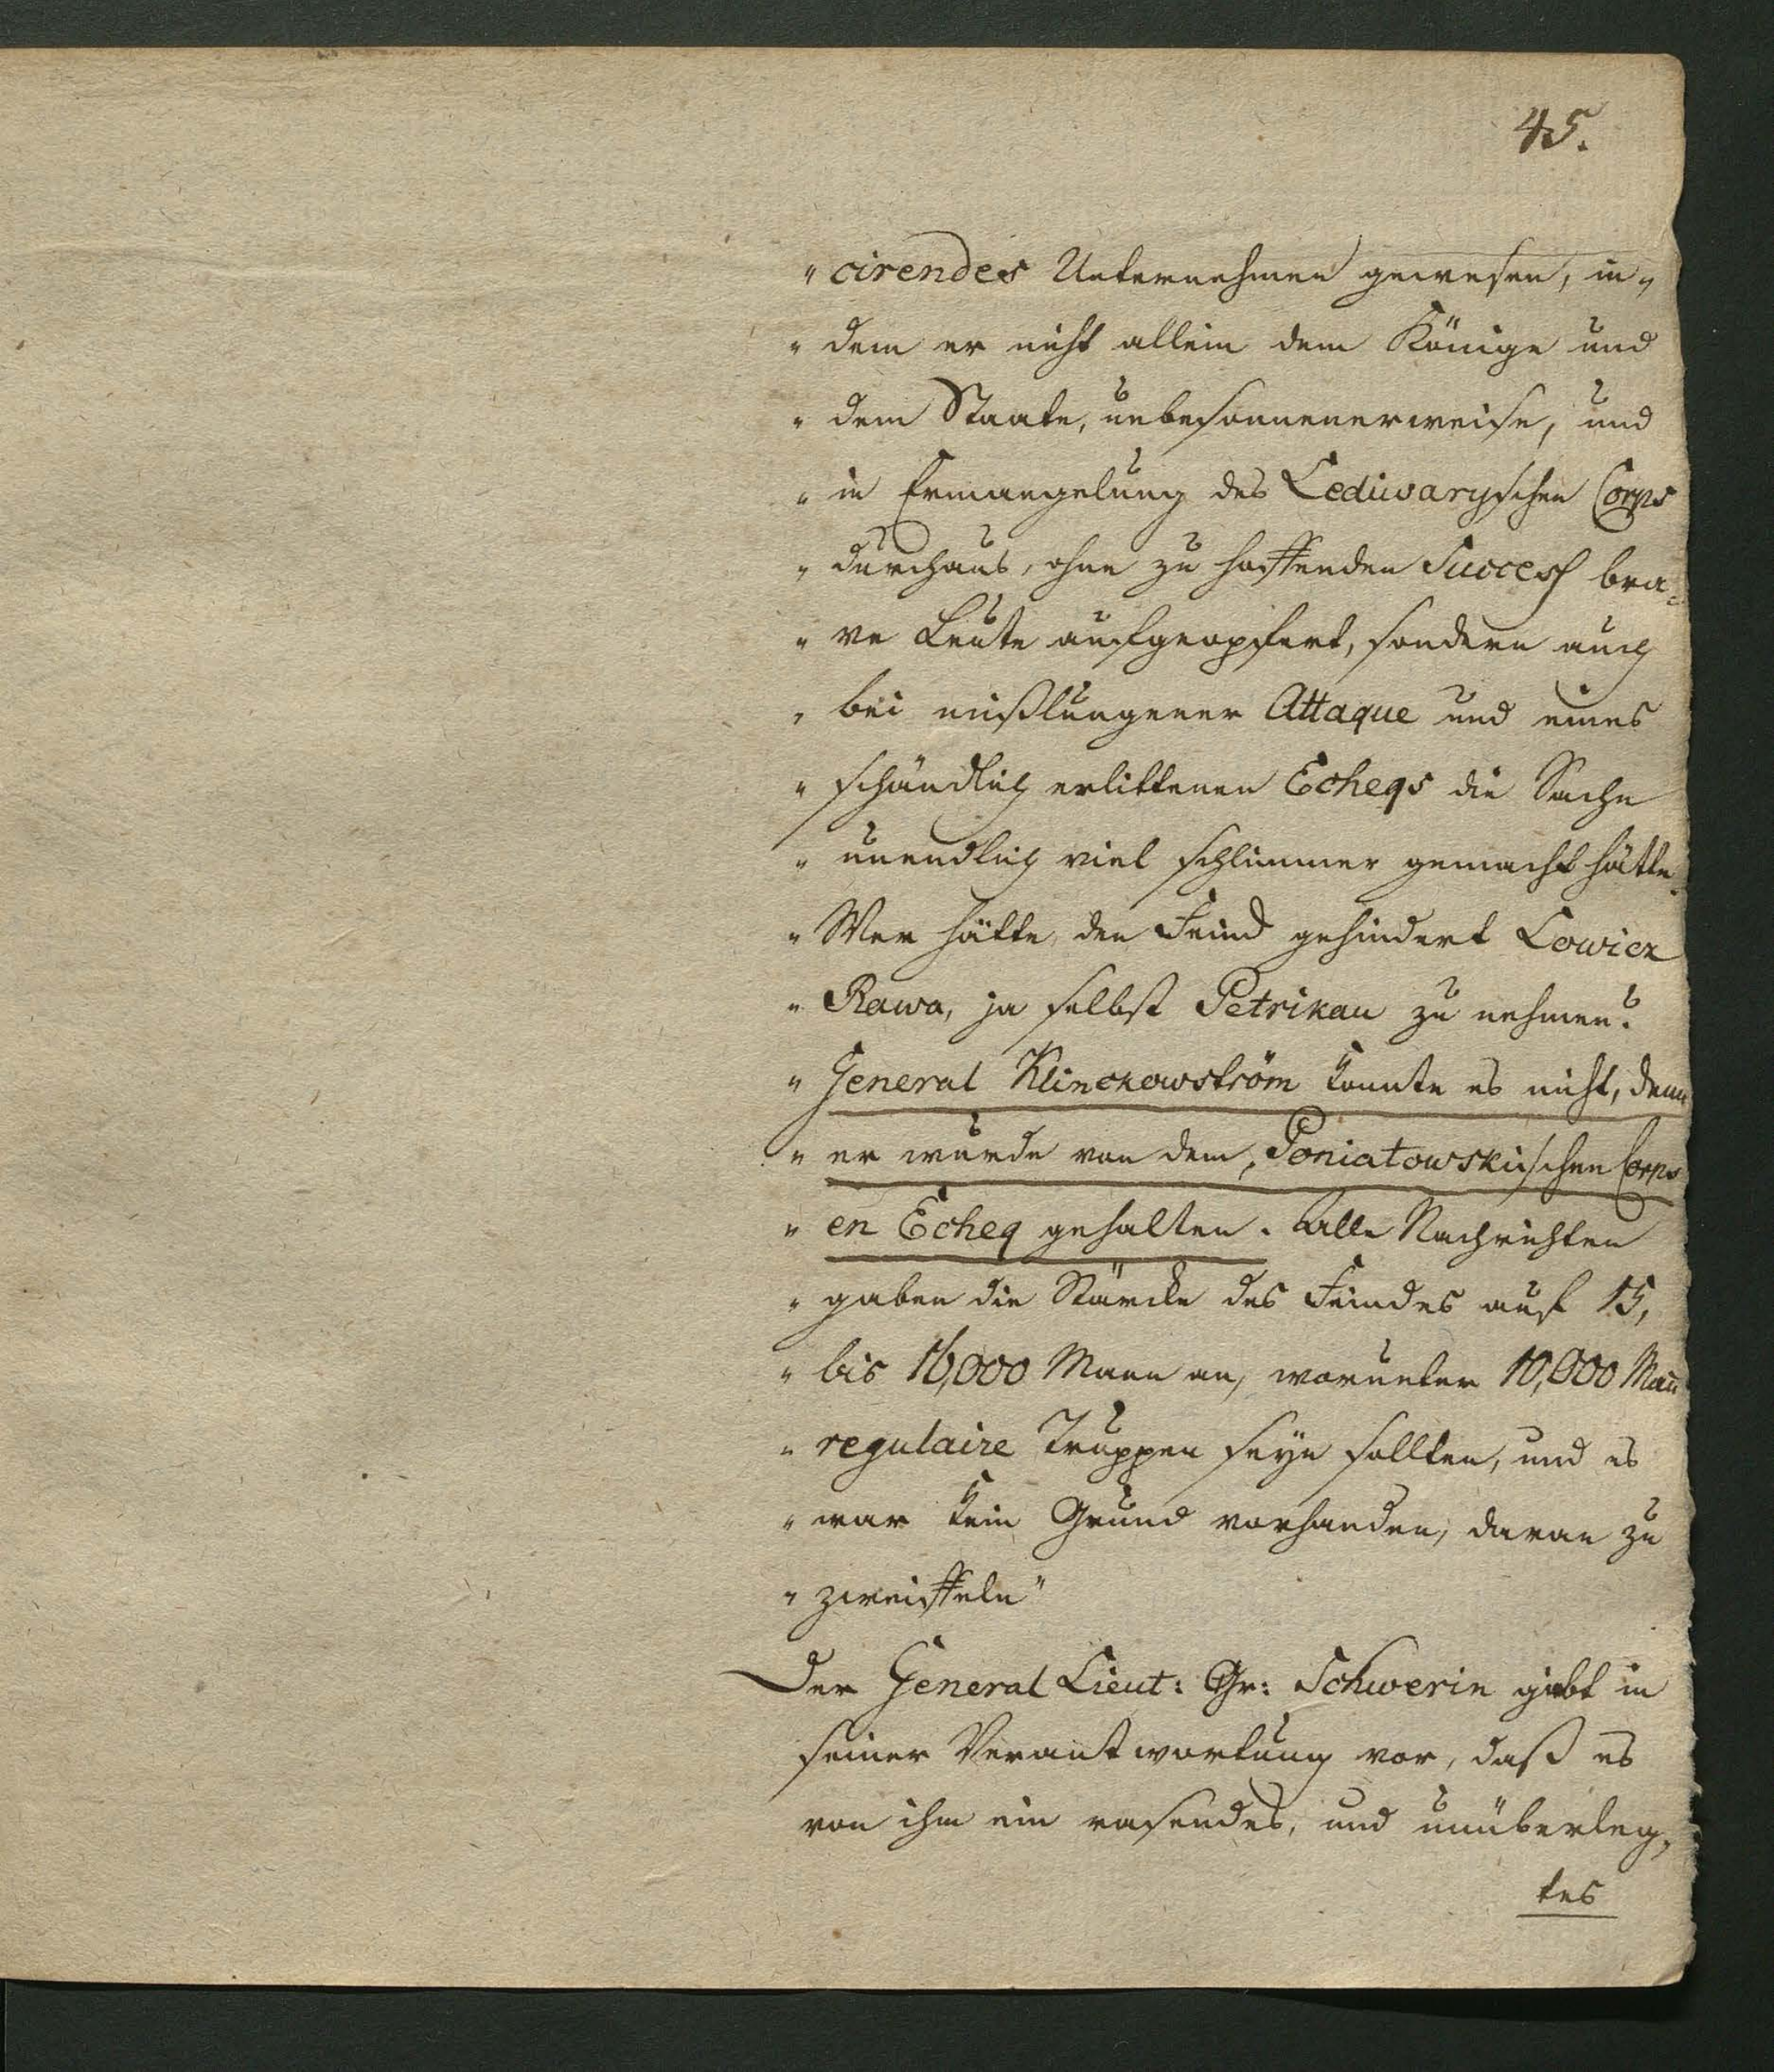 45.
" cirendes Unternehmen gewesen, in„
" dem er nicht allein dem Könige und
" dem Staate, unbesonnenerweise, und
" in Ermangelung des Lediwaryschen Corps
" durchaus, ohne zu hoffenden Success bra¬
" ve Leute aufgeopfert, sondern auch
" bei mißlungener Attaque und eines
" schändlich erlittenen Echeqs die Sache
" unendlich viel schlimmer gemacht hätte.
" Wer hätte den Feind gehindert Lowicz
" Rawa, ja selbst Petrikau zu nehmen?
" General Klinckowström konnte es nicht, denn
" er wurde von dem Poniatowskischen Corps
" en Echeq gehalten. Alle Nachrichten
" gaben die Stärcke des Feindes auf 15,
" bis 16,000 Mann an, worunter 10,000 Mañ
" regulaire Truppen seyn sollten, und es
" war kein Grund vorhanden, daran zu
" zweiffeln"
Der General Lieut: Gr: Schwerin giebt in
seiner Verantwortung vor, daß es
von ihm ein rasendes, und unüberleg„
tes